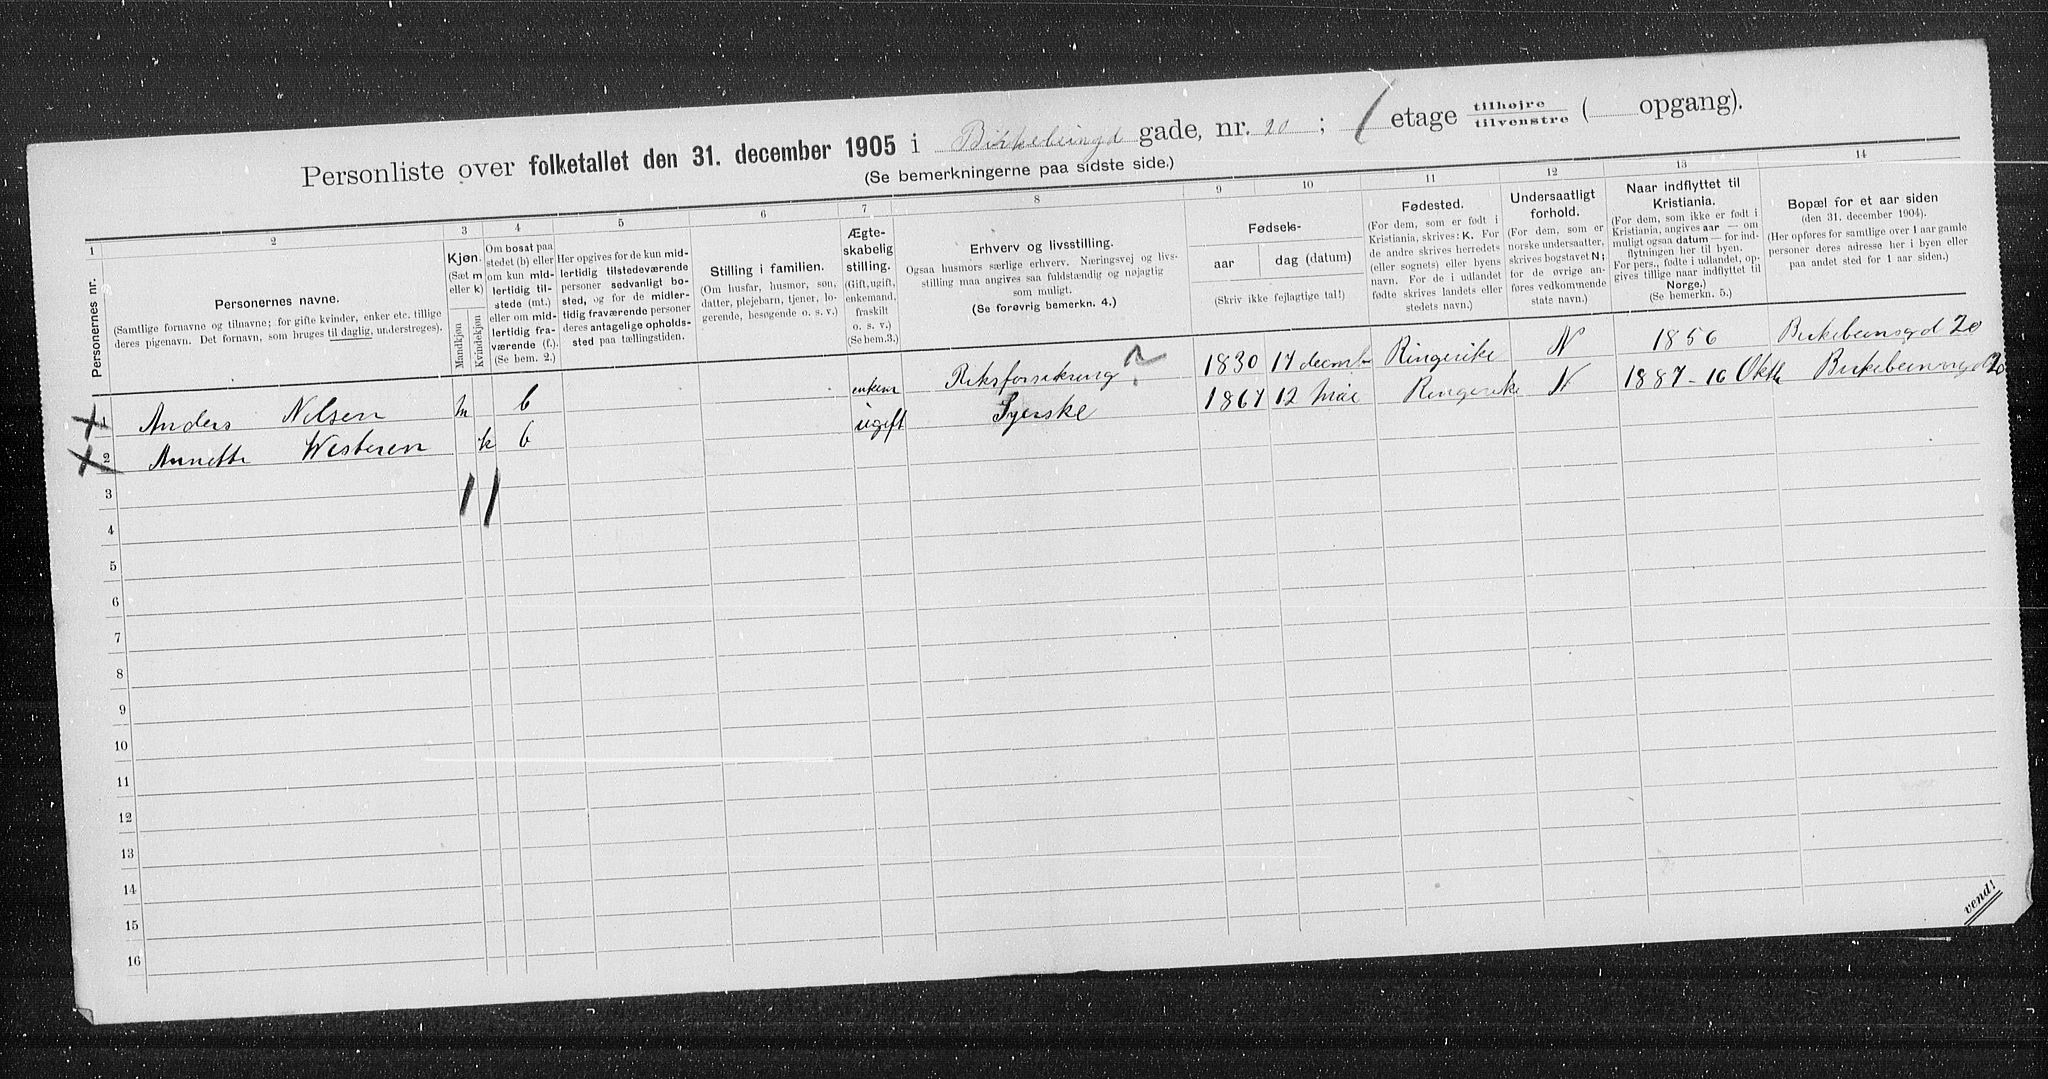 Personliste over folketallet den 31. december 1905 i Birkebeinergd gade, nr. 20 ; 1 etage tilhøjre tilvenstre ( opgang).
(Se bemerkningerne paa sidste side.)
1 2 3 4 5 6 7 8 9 10 11 12 13 14
Personernes nr.
Personernes navne.
(Samtlige fornavne og tilnavne; for gifte kvinder, enker etc. tillige
deres pigenavn. Det fornavn, som bruges til daglig, understreges).
Kjøn.
(Sæt m
eller k)
Mandkjøn
Kvindekjøn
Om bosat paa
stedet (b) eller
om kun mid-
lertidig til-
stede (mt.)
eller om mid-
lertidig fra-
værende (f.).
(Se bem. 2.)
Her opgives for de kun mid-
lertidig tilstedeværende
personer sedvanligt bo-
sted, og for de midler-
tidig fraværende personer
deres antagelige opholds-
sted paa tællingstiden.
Stilling i familien.
(Om husfar, husmor, søn,
datter, plejebarn, tjener, lo-
gerende, besøgende o. s. v.)
Ægte-
skabelig
stilling.
(Gift, ugift,
enkemand,
fraskilt
o. s. v.)
(Se bem.3.)
Erhverv og livsstilling.
Ogsaa husmors særlige erhverv. Næringsvej og livs-
stilling maa angives saa fuldstændig og nøjagtig
som muligt.
(Se forøvrig bemerkn. 4.)
Fødsels-
aar dag (datum)
(Skriv ikke fejlagtige tal!)
Fødested.
(For dem, som er født i
Kristiania, skrives: K. For
de andre skrives herredets
(eller sognets) eller byens
navn. For de i udlandet
fødte skrives landets eller
stedets navn.)
Undersaatligt
forhold.
(For dem, som er
norske undersaatter,
skrives bogstavet N;
for de øvrige an-
føres vedkommende
stats navn.)
Naar indflyttet til
Kristiania.
(For dem, som ikke er født i
Kristiania, angives aar — om
muligt ogsaa datum — for ind-
flytningen her til byen.
For pers., fødte i udlandet, op-
gives tillige naar indflyttet til
Norge.)
(Se bemerkn. 5.)
Bopæl for et aar siden
(den 31. december 1904).
(Her opføres for samtlige over 1 aar gamle
personer deres adresse her i byen eller
paa andet sted for 1 aar siden.)
1 Anders Nilsen m b enkem Riksforsikring ? 1830 17 decemb Ringerike N 1856 Birkebeinergd 20
2 Annette Westeren k b ugift Syerske 1867 12 Mai Ringerike N 1887 - 16 Oktb Birkebeinergd 20
3 1 1
4
5
6
7
8
9
10
11
12
13
14
15
16
vend!